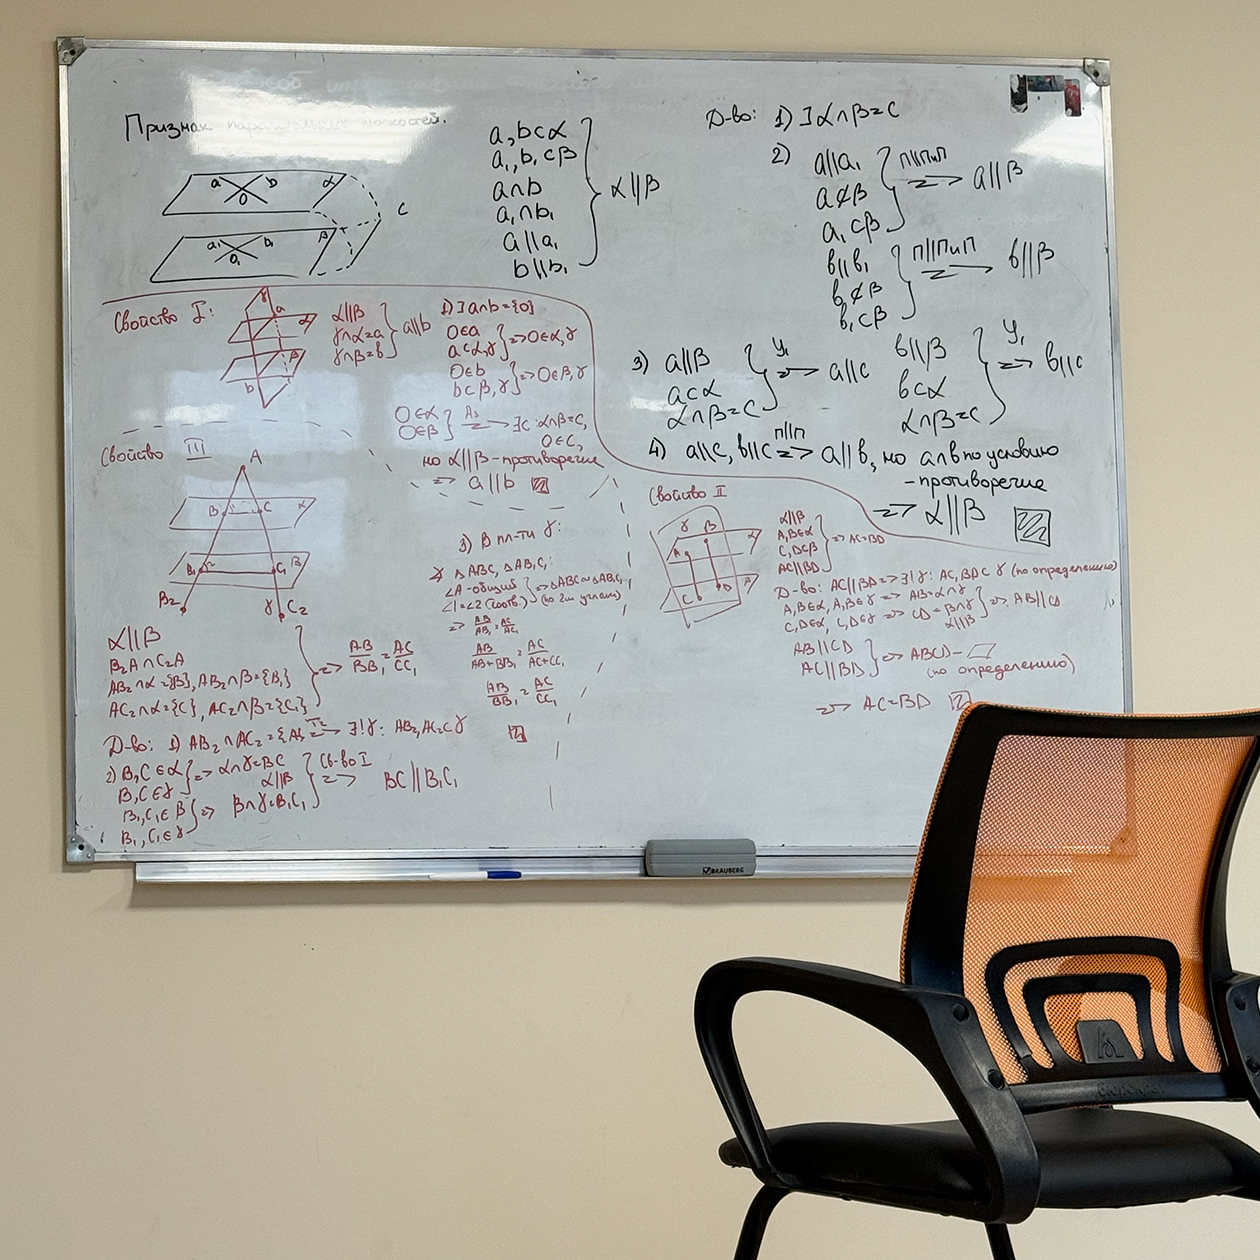 Признак параллельн плоскостей.
a b α
O
a₁ b₁ β
O₁
c
a, b ⊂ α
a₁, b₁ ⊂ β
a ∩ b
a₁ ∩ b₁
a || a₁
b || b₁
α || β
Д-во: 1) ∃ α ∩ β = c
2) a || a₁
a ⊄ β
a₁ ⊂ β
П||ПиП
=> a || β
b || b₁
b ⊄ β
b₁ ⊂ β
П||ПиП
=> b || β
3) a || β
a ⊂ α
α ∩ β = c
У₁
=> a || c
b || β
b ⊂ α
α ∩ β = c
У₁
=> b || c
4) a || c, b || c П||П => a || b, но a ∩ b по условию
- противоречие
=> α || β
Свойство I:
γ a α
β
b
α || β
γ ∩ α = a
γ ∩ β = b
a || b
1) ∃ a ∩ b = {0}
O ∈ a
a ⊂ α, γ
=> O ∈ α, γ
O ∈ b
b ⊂ β, γ
=> O ∈ β, γ
O ∈ α
O ∈ β
A₃
=> ∃ c: α ∩ β = c,
O ∈ c,
но α || β - противоречие
=> a || b
Свойство III
A
B 1 C α
B₁ 2 C₁ β
B₂ γ C₂
α || β
B₂A ∩ C₂A
AB₂ ∩ α = {B}, AB₂ ∩ β = {B₁}
AC₂ ∩ α = {C}, AC₂ ∩ β = {C₁}
=> AB/BB₁ = AC/CC₁
Д-во: 1) AB₂ ∩ AC₂ = {A} => ∃! γ: AB₂, AC₂ ⊂ γ
2) B, C ∈ α
B, C ∈ γ
=> α ∩ γ = BC
α || β
B₁, C₁ ∈ β
B₁, C₁ ∈ γ
=> β ∩ γ = B₁C₁
Св-во I
=> BC || B₁C₁
3) В пл-ти γ:
△ABC, △AB₁C₁:
∠A - общий
∠1 = ∠2 (соотв.)
=> △ABC ~ △AB₁C₁
(по 2м углам)
=> AB/AB₁ = AC/AC₁
AB/AB+BB₁ = AC/AC+CC₁
AB/BB₁ = AC/CC₁
Свойство II
γ B α
A
C D β
α || β
A, B ∈ α
C, D ⊂ β
AC || BD
=> AC = BD
Д-во: AC || BD => ∃! γ: AC, BD ⊂ γ (по определению)
A, B ∈ α, A, B ∈ γ => AB = α ∩ γ
C, D ∈ α, C, D ∈ γ => CD = β ∩ γ
α || β
=> AB || CD
AB || CD
AC || BD
=> ABCD - ▱
(по определению)
=> AC = BD
BRAUBERG